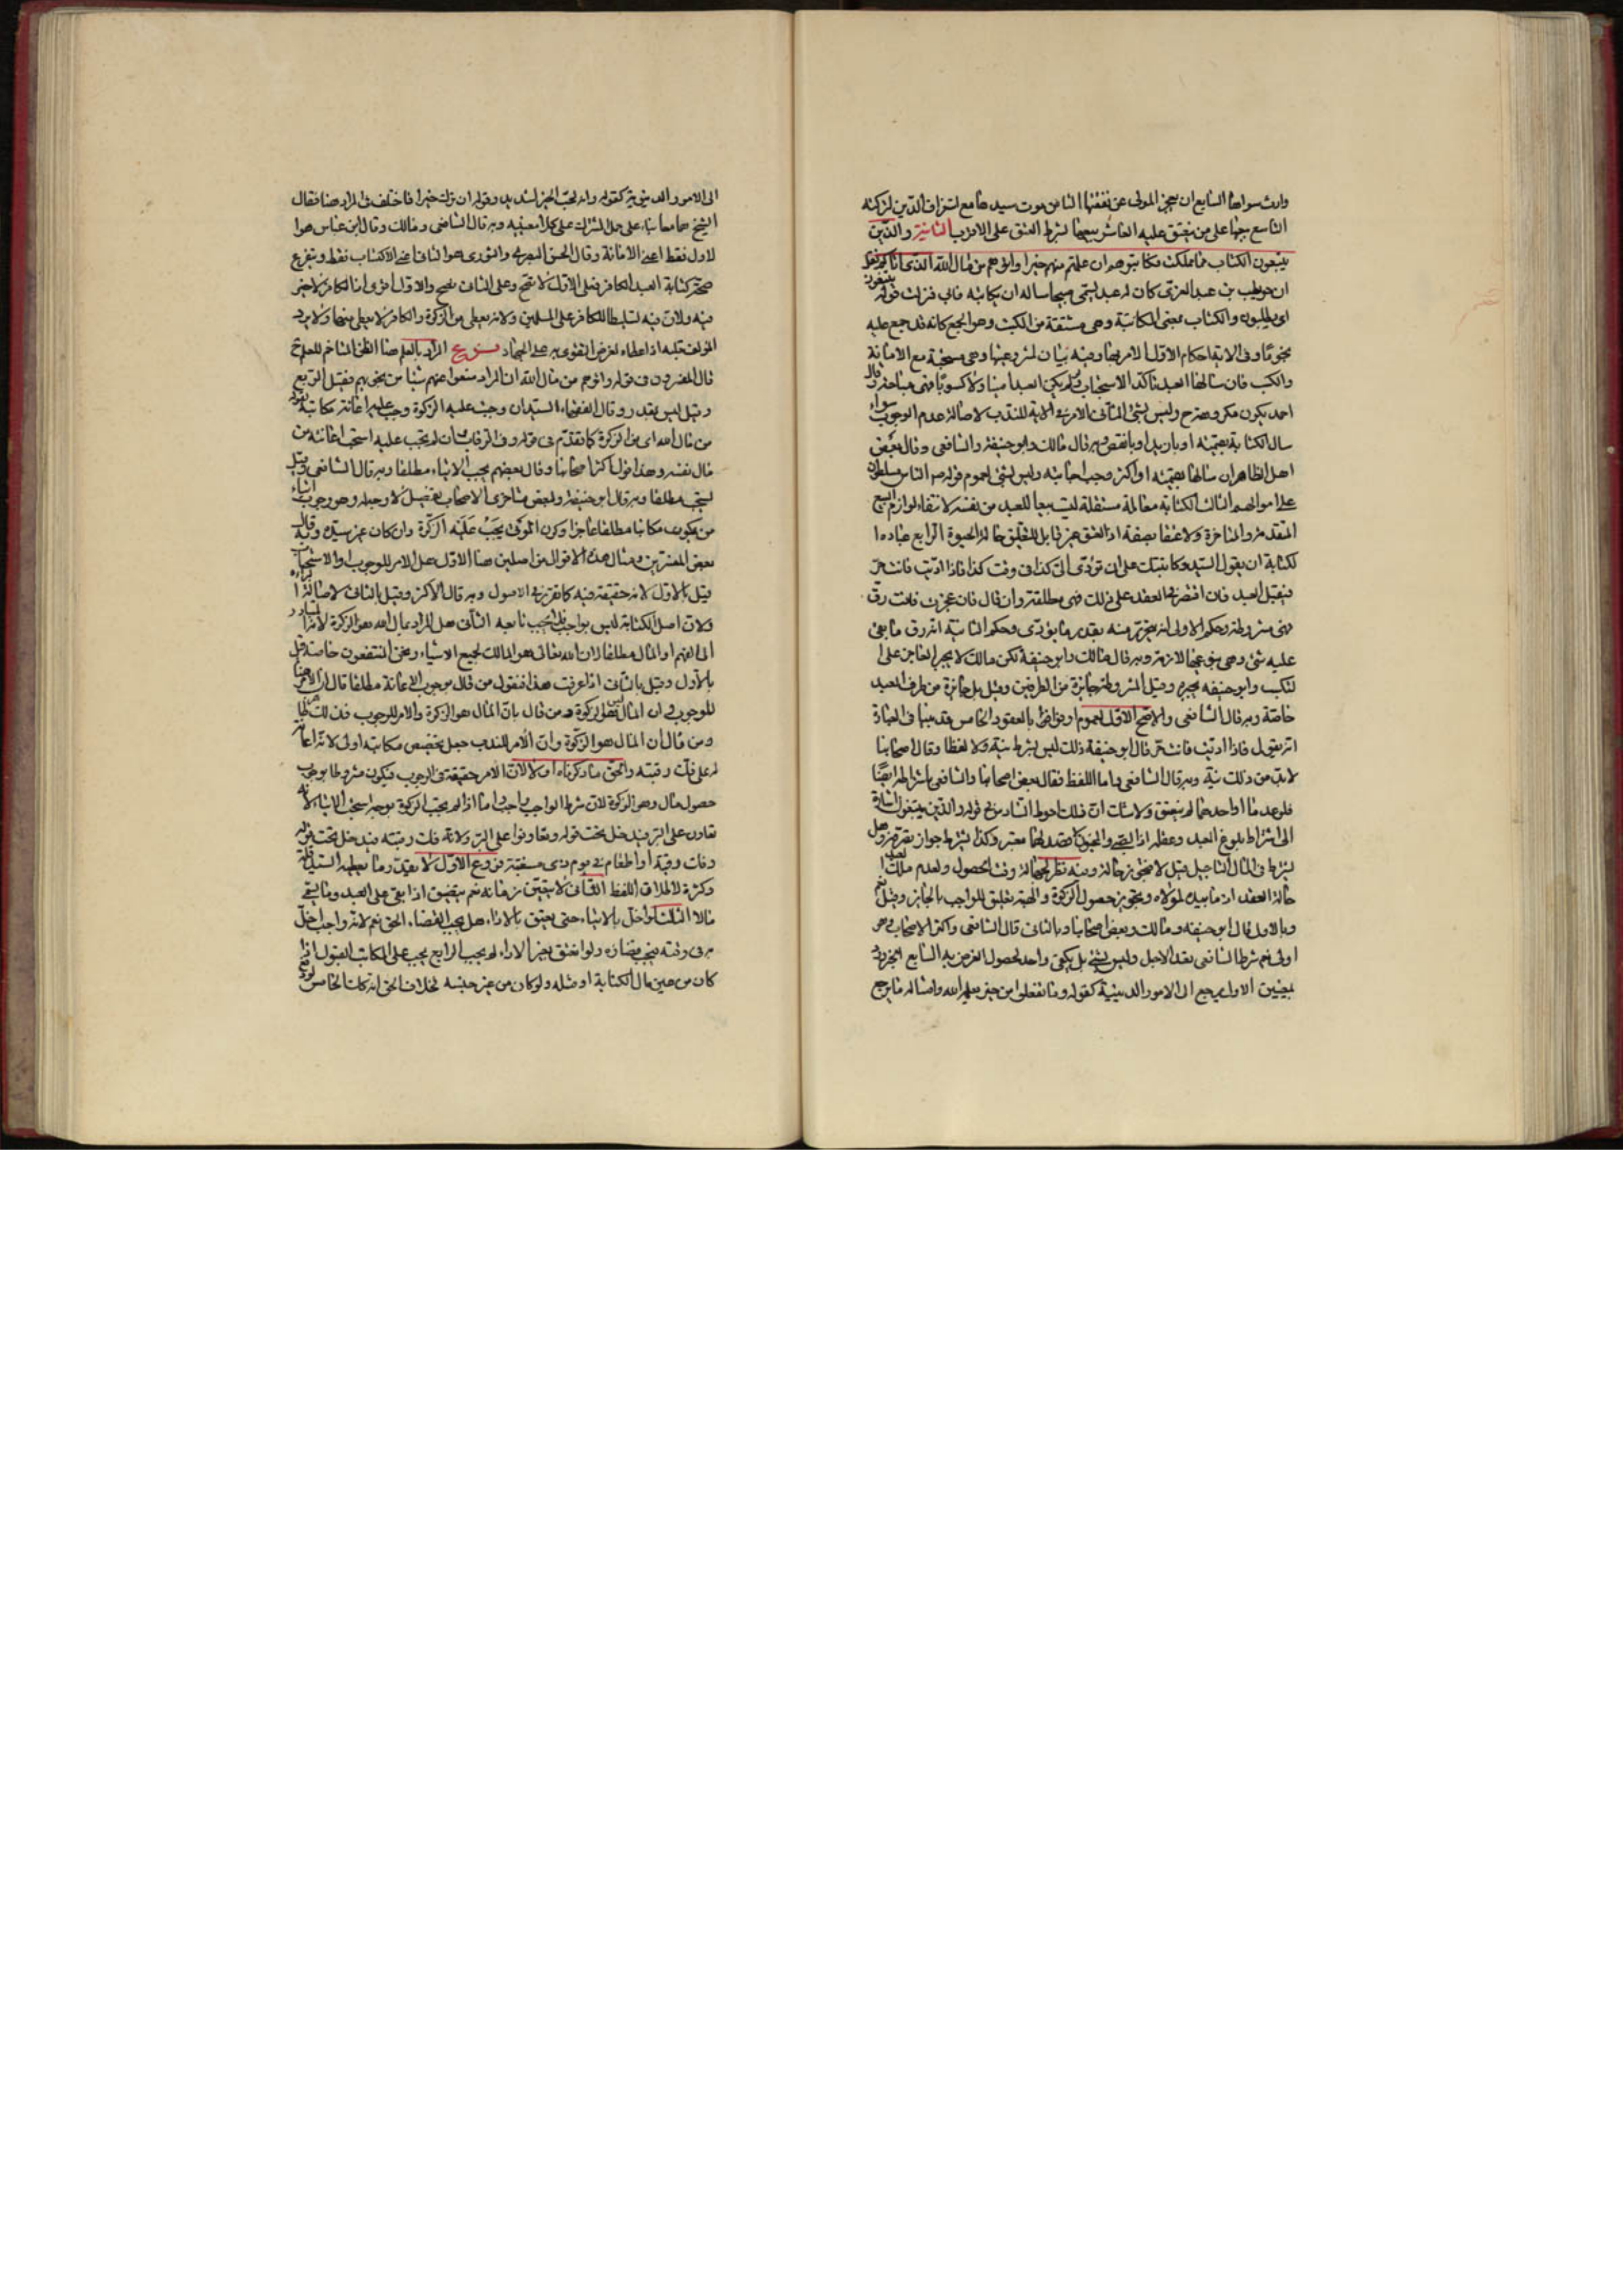 وارث سواها السابع ان يعجز المولى عن نفقتها الثامن موت سيدها مع استغراق الدين لتركته
التاسع بيعها على من ينعتق عليه العاشر بيعها بشرط العتق على الاقرب الثانية والذين
يبتغون الكتاب مما ملكت فكاتبوهم ان علمتم فيهم خيرا واتوهم من مال الله الذى اتاكم نقل
ان حويطب بن عبد العزى كان له عبد يسمى صبيحا ساله ان يكاتبه فابى فنزلت قوله يبتغون
اى يطلبون والكتاب بمعنى المكاتبة وهى مشتقة من الكتب وهو الجمع كانه قد جمع عليه
نجوما وفى الاية احكام الاول الامر بها وفيه بيان لمشروعيتها وهى مستحبة مع الامانة
والكسب فان سالها العبد تاكد الاستحباب ولو لم يكن العبد امينا ولا كسوبا فهى مباحة وقال
احمد يكون مكروهة وليس بشئ الثانى الامر فى الاية للندب لاصالة عدم الوجوب سواء
سال الكتابة بقيمته او بازيد او بانقص وبه قال مالك وابو حنيفة والشافعى وقال بعض
اهل الظاهر ان سالها بقيمته او اكثر وجب اجابته وليس بشئ لعموم قوله ص الناس مسلطون
على اموالهم الثالث الكتابة معاملة مستقلة ليست بيعا للعبد من نفسه لانتفاء لوازم البيع
المتقدمة والمتاخرة ولا عتقا بصفة اذ العتق غير قابل للتعليق حالة الحيوة الرابع عبارة ا
لكتابة ان يقول السيد كاتبتك على ان تؤدى الى كذا فى وقت كذا فاذا اديت فانت حر
فيقبل العبد فان اقتصر فى العقد على ذلك فهى مطلقة وان قال فان عجزت فانت رق
فهى مشروطة وحكم الاولى انه يتحرر منه بقدر ما يؤدى وحكم الثانية انه رق ما بقى
عليه شئ وهى بنوعيها لازمة وبه قال مالك وابو حنيفة لكن مالك لا يجبر العاجز على ا
لتكسب وابو حنيفه يجبره وقيل المشروطة جايزة من الطرفين وقيل بل جايزة من طرف العبد
خاصة وبه قال الشافعى والاصح الاول لعموم اوفوا بالعقود الخامس هل يفتقر فى العبارة
ان يقول فاذا اديت فانت حر قال ابو حنيفة ذلك ليس بشرط نية ولا لفظا وقال اصحابنا
لا بد من ذلك نية وبه قال الشافعى واما اللفظ فقال بعض اصحابنا والشافعى باشتراطه ايضا
فلو عدما او احدهما لم ينعتق ولا شك ان ذلك احوط السادس فى قوله والذين يبتغون اشارة
الى اشتراط بلوغ العبد وعقله اذ الصبى والمجنون لا قصد لهما معتبر وكذا يشترط جواز تصرفه وهل
يشترط فى المال التاجيل قيل لا فيجوز حالة وفيه نظر لجهالة وقت الحصول ولعدم ملك العبد
حالة العقد اذ ما بيده لمولاه وتجويز حصول الزكوة والهبة تعليق للواجب بالجايز وقيل نعم
وبالاول قال ابو حنيفة ومالك وبعض اصحابنا وبالثانى قال الشافعى واكثر الاصحاب وهو
اولى نعم شرط الشافعى تعدد الاجل وليس بشئ بل يكفى واحد لحصول الغرض به السابع الخير يرد
لمعنيين الاول يرجع الى الامور الدينية كقوله وما تفعلوا من خير يعلمه الله وامثاله ما يرجع
الى الامور الدنيوية كقوله وانه لحب الخير لشديد وقوله ان ترك خيرا فاختلف فى المراد هنا فقال
الشيخ هما معا بناء على حمل المشترك على كلا معنييه وبه قال الشافعى ومالك وقال ابن عباس هو ا
لاول فقط اعنى الامانة وقال الحسن البصرى والثورى هو الثانى اعنى الاكتساب فقط ويتفرع
صحة كتابة العبد الكافر فعلى الاول لا تصح وعلى الثانى تصح والاول اقوى اذ الكافر لا خير
فيه ولان فيه تسليطا للكافر على المسلمين ولانه يعطى من الزكوة والكافر لا يعطى منها ولا يرد
المؤلف قلبه اذ اعطاءه لغرض التقوى به على الجهاد فروع المراد بالعلم هنا الظن المتاخم للعلم ح
قال المفسرون فى قوله واتوهم من مال الله ان المراد ضعوا عنهم شيئا من نجومهم فقيل الربع
وقيل ليس بقدر وقال الفقهاء السيد ان وجبت عليه الزكوة وجب عليه اعانة مكاتبه لقوله
من مال الله اى من الزكوة كما تقدم فى قوله وفى الرقاب وان لم تجب عليه استحب اعانته من
مال نفسه وهذا قول اكثر اصحابنا وقال بعضهم يجب الايتاء مطلقا وبه قال الشافعى وقيل
يستحب مطلقا وبه قال ابو حنيفة ولبعض متاخرى الاصحاب تفصيل لا وجه له وهو وجوب ايتاء
من يكون مكاتبا مطلقا عاجزا وكون المولى يجب عليه الزكوة وان كان غير سيده وبه قال
بعض المفسرين ومثار هذه الاقوال من اصلين هنا الاول هل الامر للوجوب او الاستحباب
قيل بالاول لانه حقيقة فيه كما تقرر فى الاصول وبه قال الاكثر وقيل بالثانى لاصالة البراءة
ولان اصل الكتابة ليس بواجب فلا يجب تابعه الثانى هل المراد بمال الله هو الزكوة لانه المتبادر
الى الفهم او المال مطلقا لان الله تعالى هو المالك لجميع الاشياء ونحن المنتفعون خاصة قيل
بالاول وقيل بالثانى اذا عرفت هذا فنقول من قال بوجوب الاعانة مطلقا قال ان الامر هنا
للوجوب وان المال ليس هو الزكوة ومن قال بان المال هو الزكوة والامر للوجوب
ومن قال ان المال هو الزكوة وان الامر للندب جعل تخصيص مكاتبه اولى لانه اعانة
له على فك رقبته والحق ما ذكرناه اولا لان الامر حقيقة فى الوجوب فيكون مشروطا بوجوب
حصول مال وهو الزكوة لان شرط الواجب واجب واما اذا لم يجب الزكوة يوجه استحباب الايتاء لانه
تعاون على البر فيدخل تحت قوله وتعاونوا على البر ولانه فك رقبته فيدخل تحت قوله
وفك رقبة او اطعام فى يوم ذى مسغبة فروع الاول لا يتقدر ما يعطيه السيد قلة
وكثرة لاطلاق اللفظ الثانى لا يتعين زمانه نعم يتضيق اذا بقى على العبد وما بقى
مالا الثالث لو اخل بالايتاء حتى يعتق بالاداء هل يجب القضاء الحق نعم لانه واجب اخل
به فى وقته فيجب قضاؤه ولو انعتق بغير الاداء لم يجب الرابع يجب على المكاتب القبول اذا
كان من عين مال الكتابة او مثله ولو كان من غير جنسه بخلاف الحق انه كذلك الخامس لو دفع